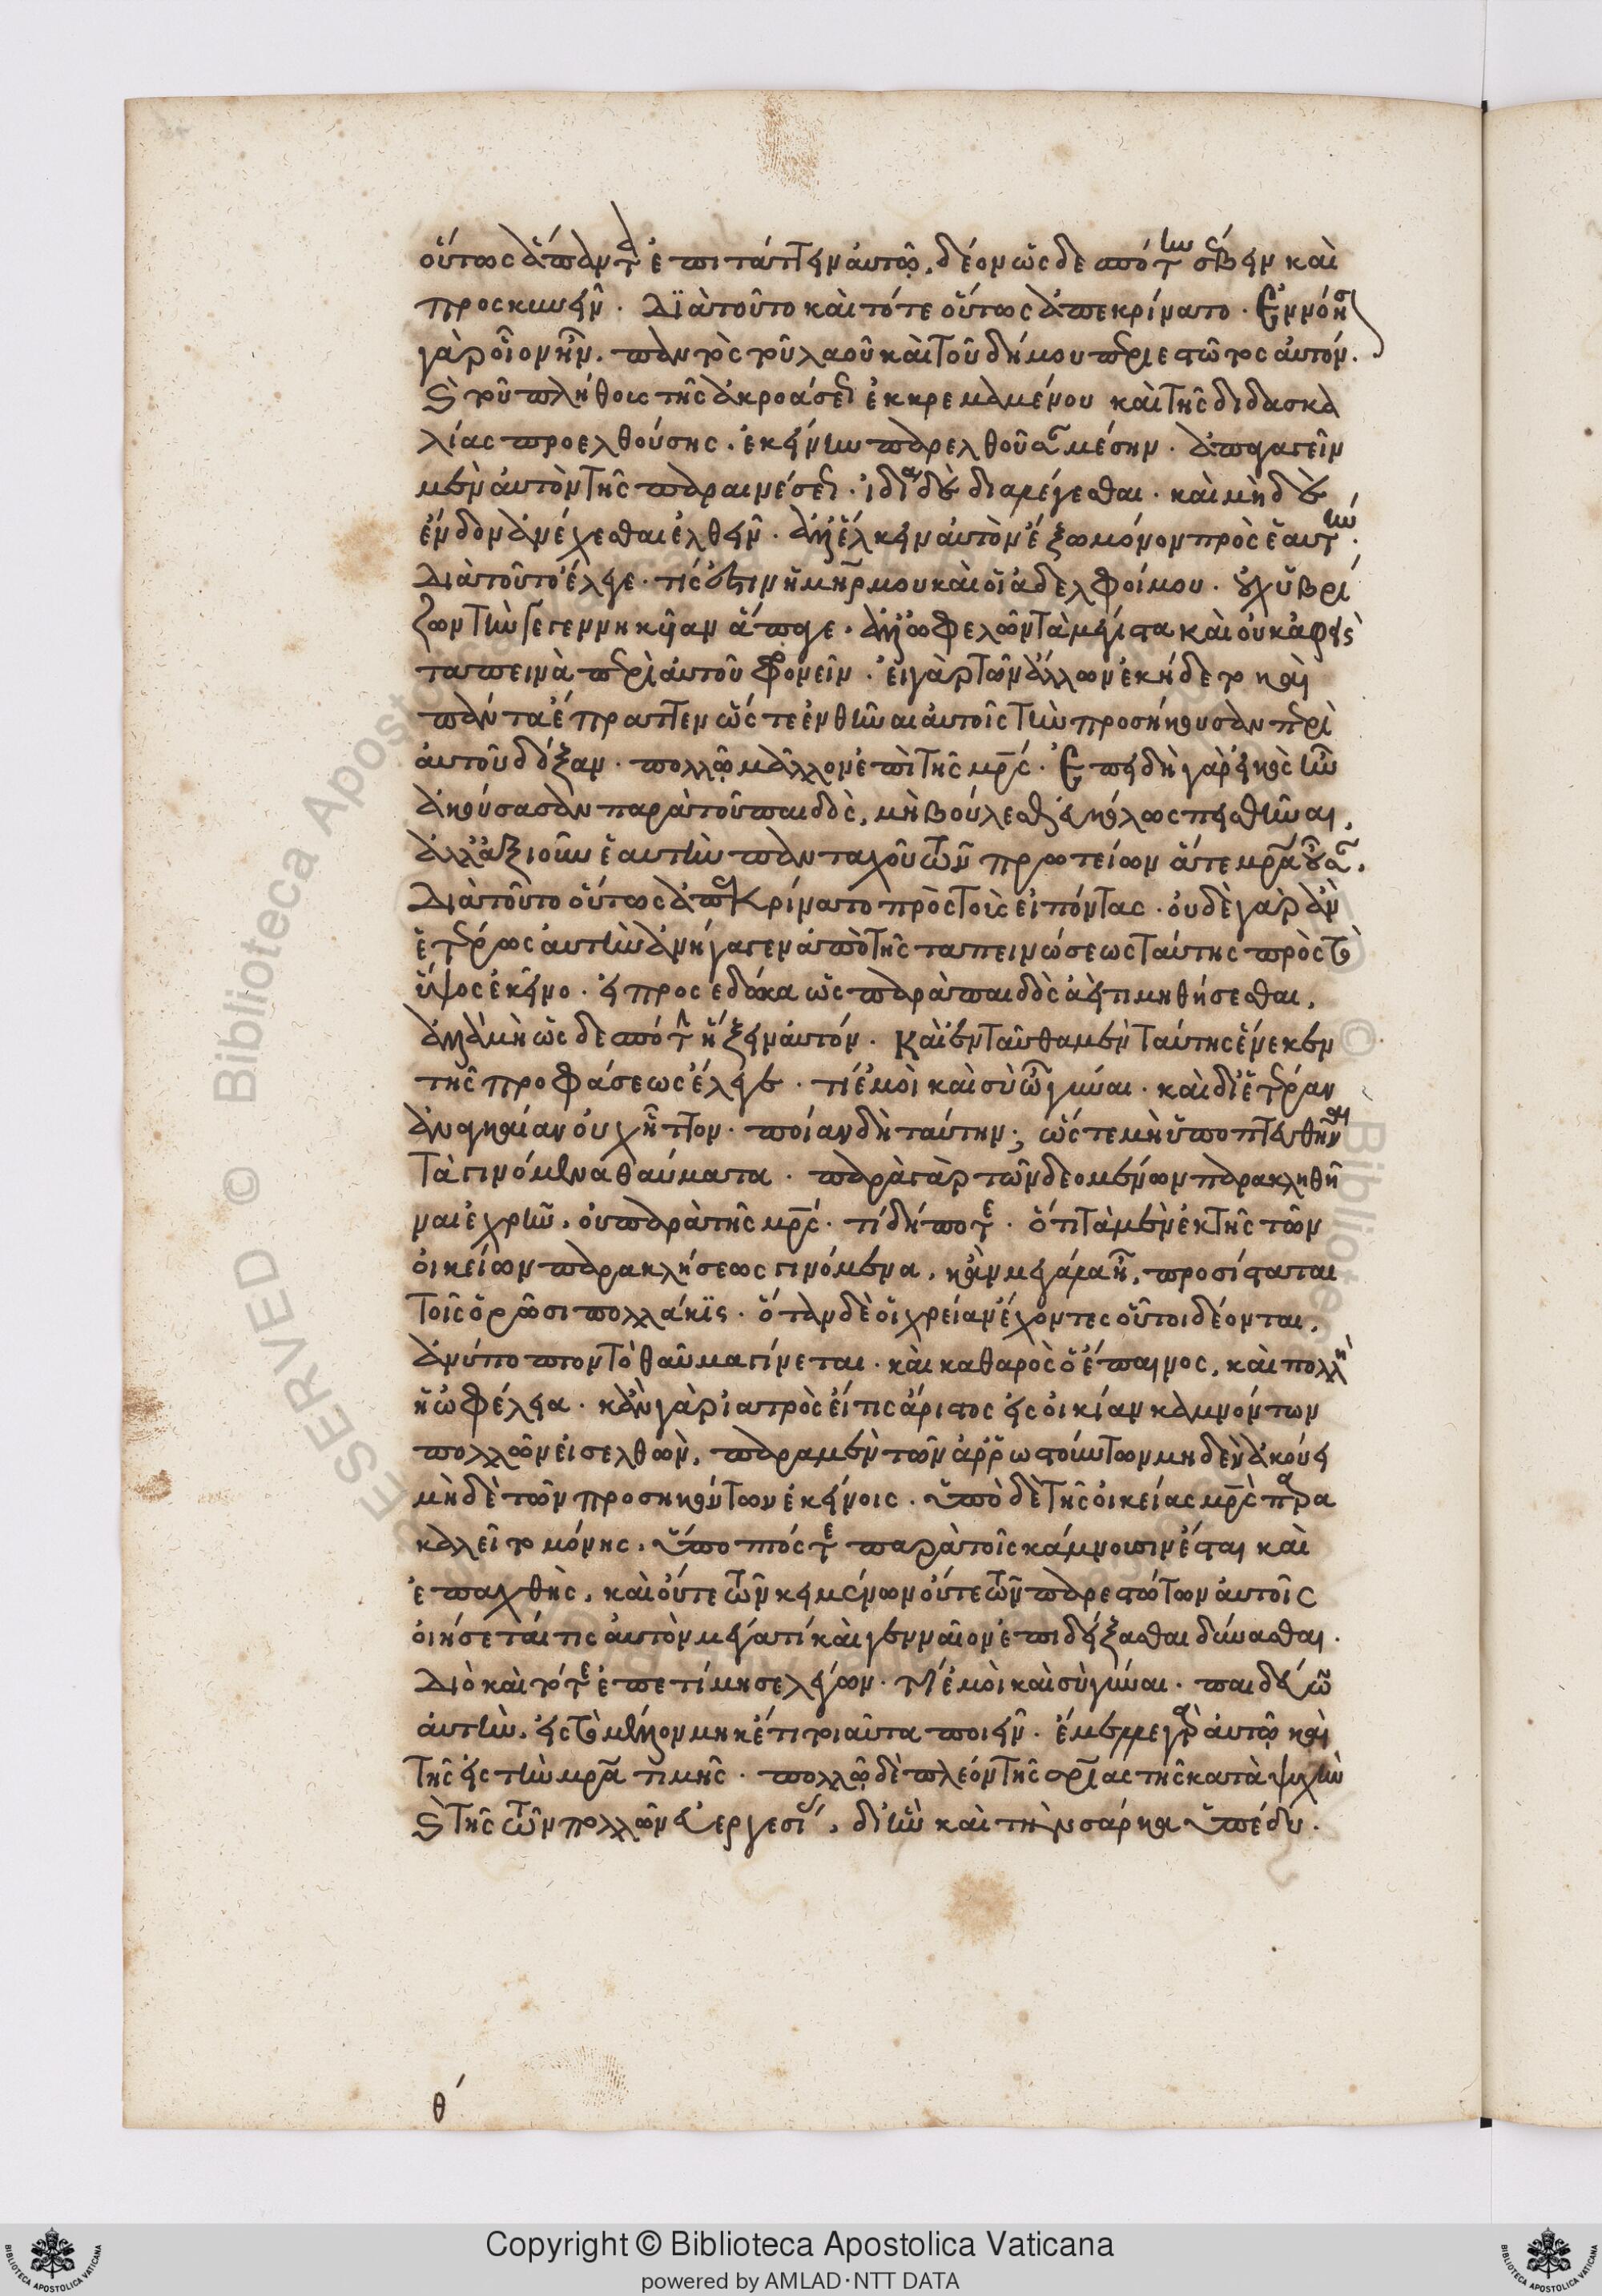 οὕτως ἅπαντα ἐπιτάττειν αὐτῷ, δέον ὡς δεσπότην σέβειν καὶ
προσκυνεῖν. Διὰ τοῦτο καὶ τότε οὕτως ἀπεκρίνατο. Ἐννόησον
γὰρ οἷον ἦν, παντὸς τοῦ λαοῦ καὶ τοῦ δήμου περιεστῶτος αὐτόν.
καὶ τοῦ πλήθους τῆς ἀκροάσεως ἐκκρεμαμένου καὶ τῆς διδασκα
λίας προελθούσης. ἐκείνην παρελθοῦσαν μέσην. ἀπαγαγεῖν
μὲν αὐτὸν τῆς παραινέσεως. ἰδίᾳ δὲ διαλέγεσθαι. καὶ μηδὲ
ἔνδον ἀνέχεσθαι ἐλθεῖν. ἀλλ' ἕλκειν αὐτὸν ἔξω μόνον πρὸς ἑαυτήν.
Διὰ τοῦτο ἔλεγε. τίς ἐστιν ἡ μηρ μου καὶ οἱ ἀδελφοί μου. οὐχ ὑβρί
ζων τὴν γεγεννηκυῖαν ἄπαγε. ἀλλ' ὠφελῶν τὰ μέγιστα καὶ οὐκ ἀφεὶς
ταπεινὰ περὶ αὐτοῦ φρονεῖν. εἰ γὰρ τῶν ἄλλων ἐκήδετο καὶ
πάντα ἔπραττεν ὥστε ἐνθῆναι αὐτοῖς τὴν προσήκουσαν περὶ
αὐτοῦ δόξαν. πολλῷ μᾶλλον ἐπὶ τῆς μρς. Ἐπειδὴ γὰρ εἰκὸς ἦν
ἀκούσασαν παρὰ τοῦ παιδὸς, μὴ βούλεσθαι εὐκόλως πεισθῆναι,
ἀλλ' ἀξιοῦν ἑαυτὴν πανταχοῦ τῶν πρωτείων ἅτε μρα οὖσαν.
Διὰ τοῦτο οὕτως ἀπεκρίνατο πρὸς τοὺς εἰπόντας. οὐδὲ γὰρ ἂν
ἑτέρως αὐτὴν ἀνήγαγεν ἀπὸ τῆς ταπεινώσεως ταύτης πρὸς τὸ
ὕψος ἐκεῖνο. εἰ προσεδόκα ὡς παρὰ παιδὸς ἀεὶ τιμηθήσεσθαι,
ἀλλὰ μὴ ὡς δεσπότην ἥξειν αὐτόν. Καὶ ἐνταῦθα μὲν ταύτης ἕνεκεν
τῆς προφάσεως ἔλεγε. τί ἐμοὶ καὶ σὺ ὦ γύναι. καὶ δι' ἑτέραν
ἀναγκαίαν οὐχ ἧττον. ποίαν δὴ ταύτην; ὥστε μὴ ὑποπτευθῆναι
τὰ γινόμενα θαύματα. παρὰ γὰρ τῶν δεομένων παρακληθῆ
ναι ἐχρῆν, οὐ παρὰ τῆς μρς. τί δήποτε. ὅτι τὰ μὲν ἐκ τῆς τῶν
οἰκείων παρακλήσεως γινόμενα, κἂν μεγάλα ᾖ, προσίσταται
τοῖς ὁρῶσι πολλάκις. ὅταν δὲ οἱ χρείαν ἔχοντες οὗτοι δέονται,
ἀνύποπτον τὸ θαῦμα γίνεται. καὶ καθαρὸς ὁ ἔπαινος, καὶ πολλὴ
ἡ ὠφέλεια. κἂν γὰρ ἰατρὸς εἴ τις ἄριστος εἰς οἰκίαν καμνόντων
πολλῶν εἰσελθὼν, παρὰ μὲν τῶν ἀρρωστούντων μηδὲν ἀκούει
μὴ δὲ τῶν προσηκόντων ἐκείνοις. ὑπὸ δὲ τῆς οἰκείας μρς παρα
καλεῖτο μόνης, ὕποπτός τε παρὰ τοῖς κάμνουσιν ἔσται καὶ
ἐπαχθὴς, καὶ οὔτε τῶν κειμένων οὔτε τῶν παρεστώτων αὐτοῖς
οἰήσεταί τις αὐτὸν μέγα τί καὶ γενναῖον ἐπιδείξασθαι δύνασθαι.
Διὸ καὶ τότε ἐπετίμησε λέγων. τί ἐμοὶ καὶ σὺ γύναι. παιδεύων
αὐτὴν, εἰς τὸ μέλλον μηκέτι τοιαῦτα ποιεῖν. ἔμελλε γὰρ αὐτῷ καὶ
τῆς εἰς τὴν μρα τιμῆς. πολλῷ δὲ πλέον τῆς σρίας τῆς κατὰ ψυχὴν
καὶ τῆς τῶν πολλῶν εὐεργεσίας, δι' ἣν καὶ τὴν σάρκα ὑπέδυ.
θ΄
Copyright © Biblioteca Apostolica Vaticana
powered by AMLAD·NTT DATA